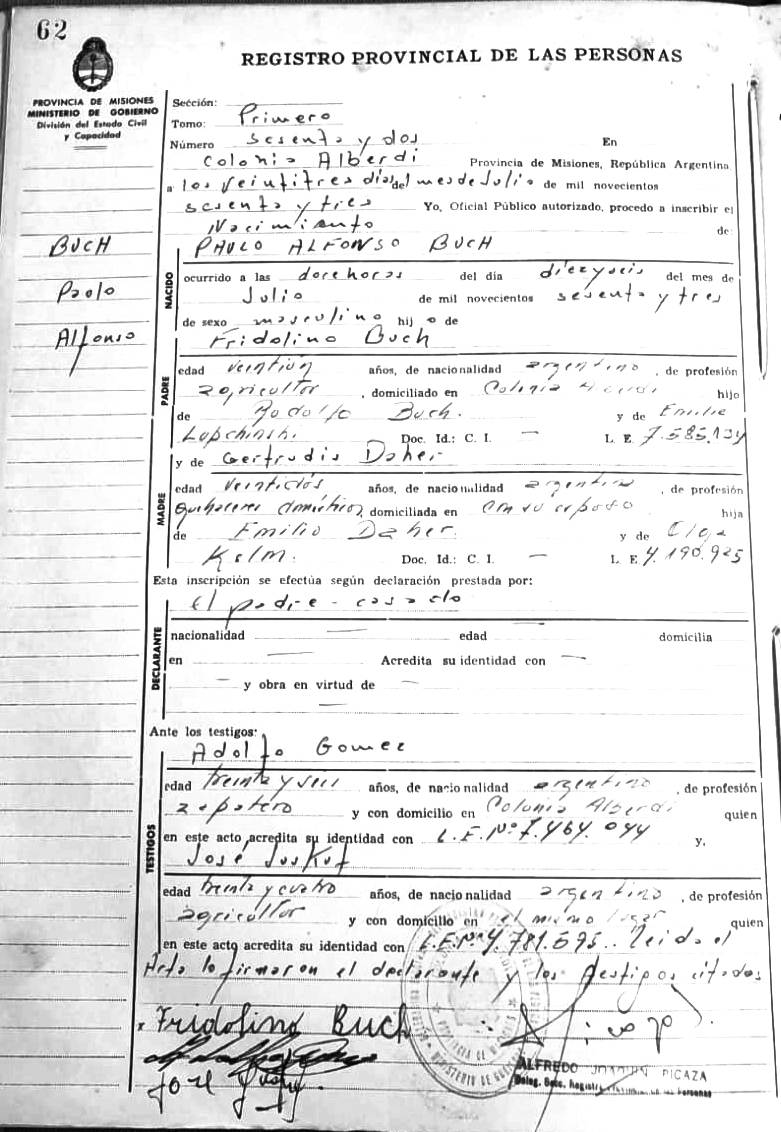 62
REGISTRO PROVINCIAL DE LAS PERSONAS
PROVINCIA DE MISIONES
MINISTERIO DE GOBIERNO
División del Estado Civil
y Capacidad
Sección:
Tomo: Primero
Número sesenta y dos En
Colonia Alberdi Provincia de Misiones, República Argentina
a los veintitres días del mes de Julio de mil novecientos
sesenta y tres Yo, Oficial Público autorizado, procedo a inscribir el
Nacimiento de:
BUCH
Paolo
Alfonso
NACIDO
PAULO ALFONSO BUCH
ocurrido a las doce horas del día diez y seis del mes de
Julio de mil novecientos sesenta y tres
de sexo masculino hijo de
PADRE
Fridolino Buch
edad veintiún años, de nacionalidad argentino, de profesión
agricultor, domiciliado en Colonia hijo
de Rodolfo Buch. y de Emilie
Lupchinski Doc. Id.: C. I. — L. E. 7.585.134
MADRE
y de Gertrudis Daher
edad veintidós años, de nacionalidad argentina, de profesión
domésticos, domiciliada en con su esposo hija
de Emilio Daher. y de Olga
Kelm. Doc. Id.: C. I. — L. E. 4.190.925
Esta inscripción se efectúa según declaración prestada por:
el padre - casado
DECLARANTE
nacionalidad — edad — domicilia
en — Acredita su identidad con —
— y obra en virtud de —
—
Ante los testigos:
TESTIGOS
Adolfo Gomez
edad treinta y seis años, de nacionalidad argentino, de profesión
zapatero y con domicilio en Colonia Alberdi quien
en este acto acredita su identidad con L.E. Nº 7.464.044 y,
José
edad treinta y cuatro años, de nacionalidad argentino, de profesión
agricultor y con domicilio en el mismo lugar quien
en este acto acredita su identidad con L.E. Nº 4.781.595.. Leida el
Acta lo firmaron el declarante y los testigos citados
Fridolino Buch
José
ALFREDO JOAQUIN PICAZA